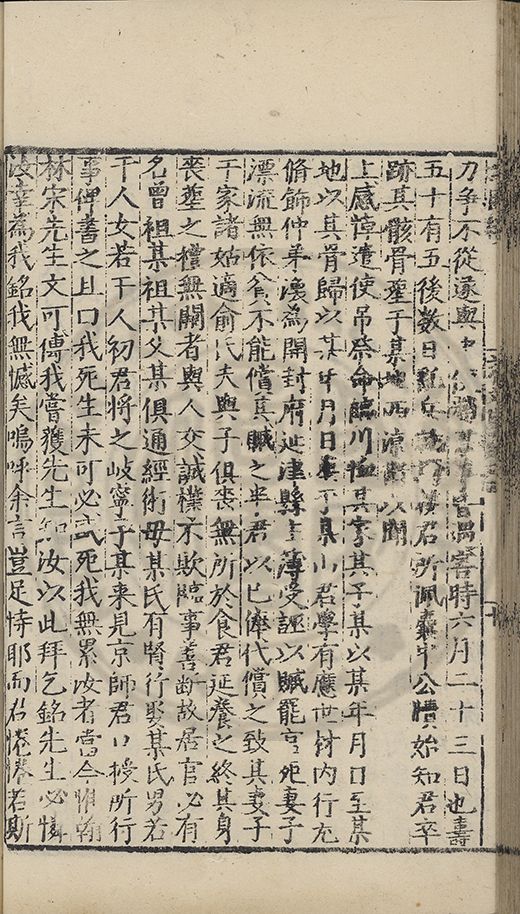 力爭不從遂與
害時六月二十三日也壽
五十有五後數日
君所佩囊中公牘始知君卒
跡其骸骨𦵏于某地
以聞
上感悼遣使吊祭命臨川恤其家其子某以某年月日至某
地以其骨歸以某年月日𦵏于某山君學有應世材内行充
脩飾仲弟㴠為開封府延津縣主簿受誣以贓罷官死妻子
漂流無依貧不能償其贓之半君以已俸代償之致其妻子
于家諸姑適俞氏夫與子俱喪無所於食君延養之終其身
喪𦵏之禮無闕者與人交誠樸不欺臨事善斷故居官必有
名曾祖某祖某父某俱通經術母某氏有賢行娶某氏男若
干人女若干人初君將之岐寧子某来見京師君口授所行
事俾書之且曰我死生未可必或死我無累汝者當今惟翰
林宋先生文可傳我嘗獲先生知汝以此拜乞銘先生必憐
汝幸為我銘我無憾矣嗚呼余言豈足恃耶而君惓惓若斯